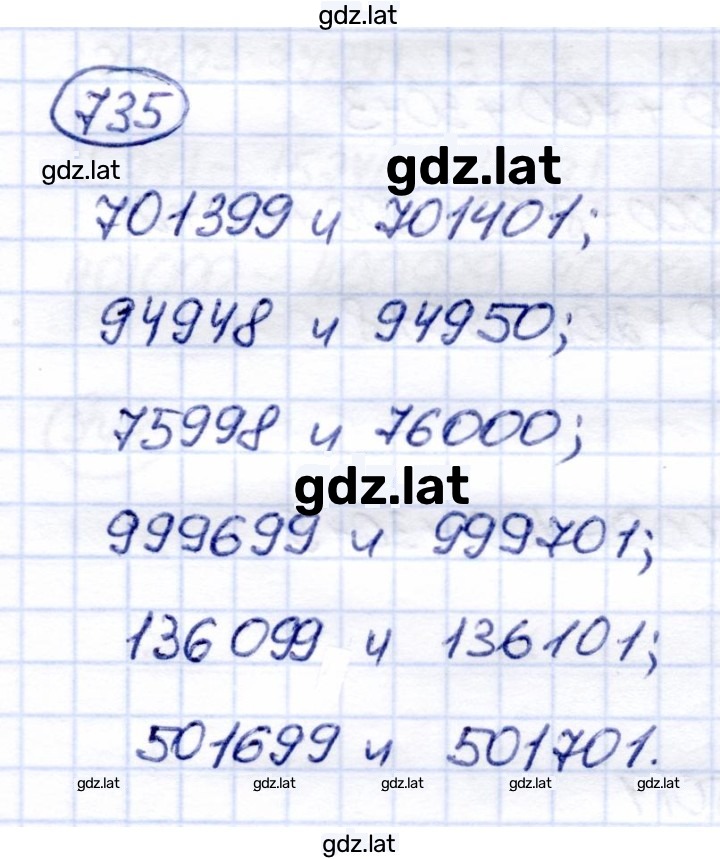 gdz.lat
735
gdz.lat
gdz.lat
701399 и 701401;
94948 и 94950;
75998 и 76000;
gdz.lat
999699 и 999701;
136099 и 136101;
501699 и 501701.
gdz.lat gdz.lat gdz.lat gdz.lat gdz.lat
gdz.lat